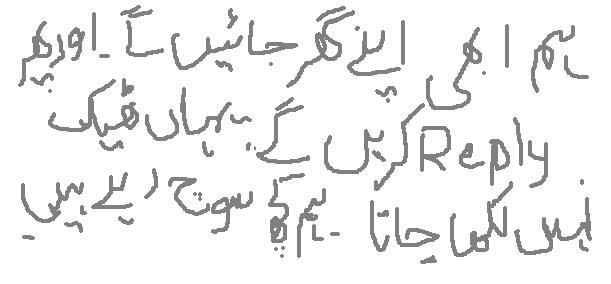 ہم ابھی اپنے گھر جائیں گے۔ اور پھر
Reply کریں گے۔ یہاں ٹھیک
نہیں لکھا جاتا ۔ ہم کچھ سوچ رہے ہیں